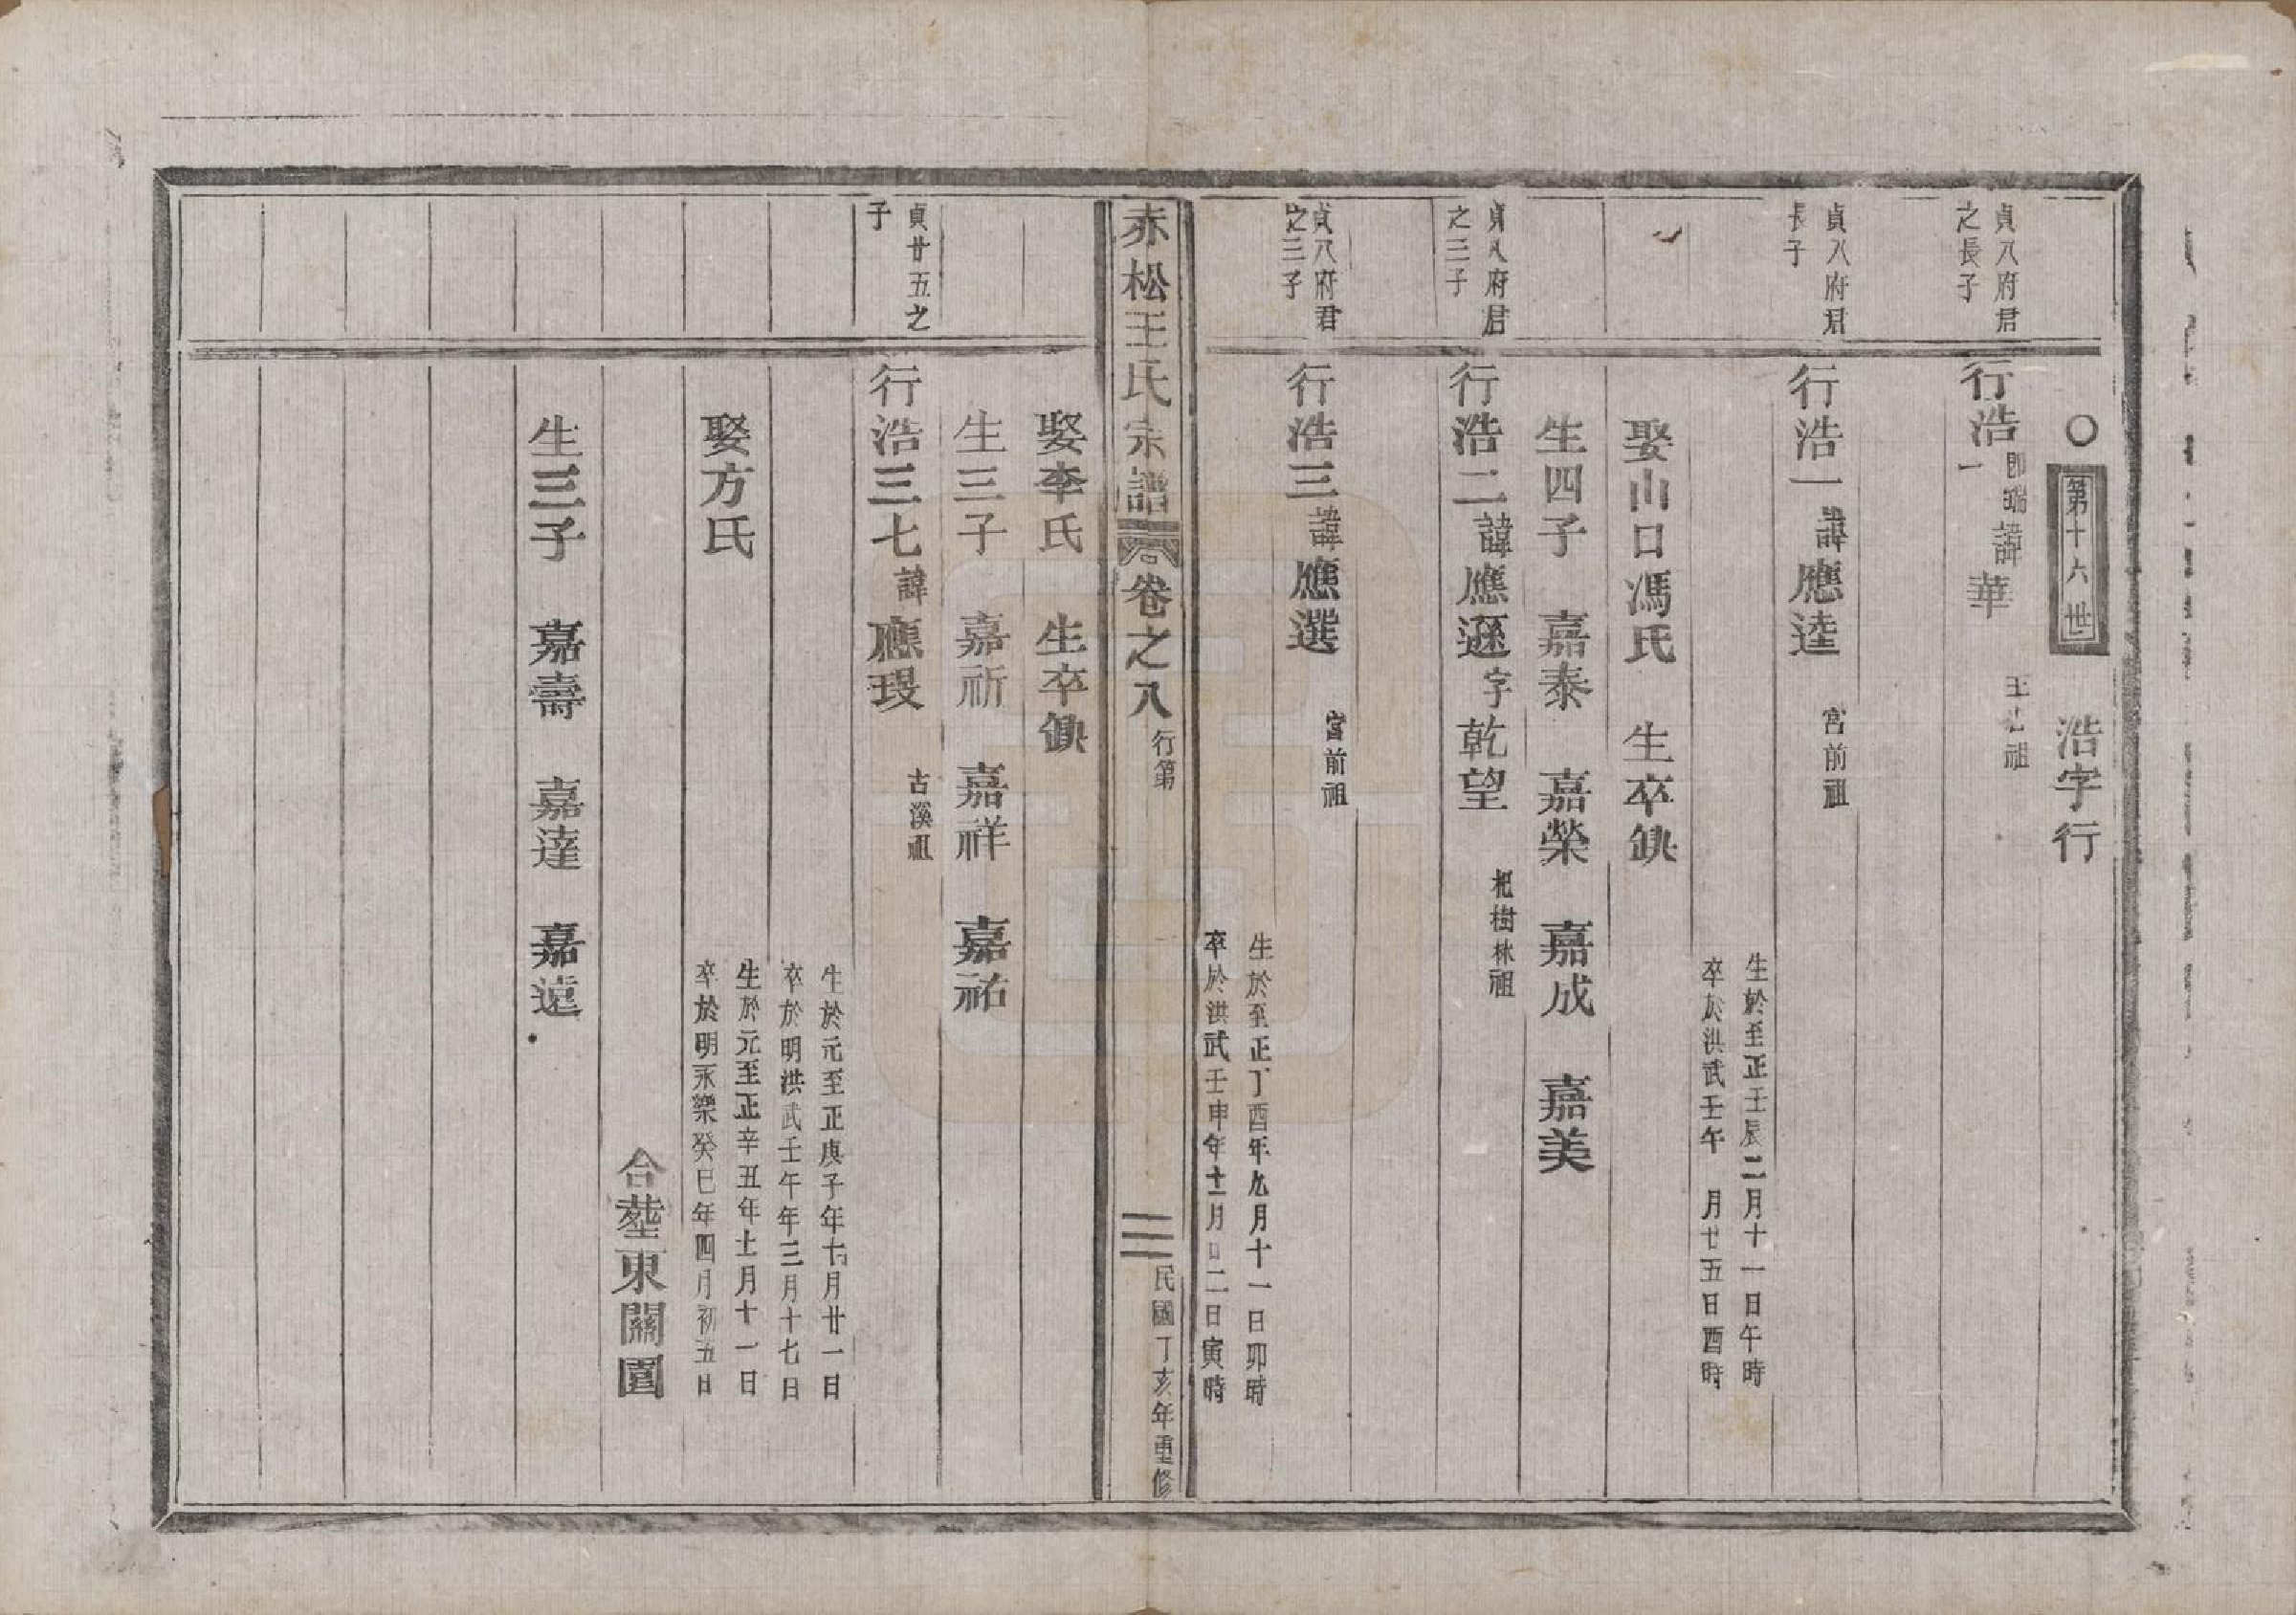 ○ 第十六世 浩字行
貞八府君之長子
行浩一 即瑞 諱華 祖
貞八府君長子
行浩一 諱應逵 宮前祖
生於至正壬辰二月十一日午時
卒於洪武壬午 月廿五日酉時
娶山口馮氏 生卒缺
生四子 嘉泰 嘉榮 嘉成 嘉美
貞八府君之二子
行浩二 諱應遜 字乾望 杷樹林祖
貞八府君之三子
行浩三 諱應選 宮前祖
生於至正丁酉年九月十一日卯時
卒於洪武壬申年十二月 二日寅時
赤松王氏宗譜 卷之八 行第 三 民國丁亥年重修
娶李氏 生卒缺
生三子 嘉祈 嘉祥 嘉祐
貞廿五之子
行浩三七 諱應 古溪祖
生於元至正庚子年十月廿一日
卒於明洪武壬午年三月十七日
娶方氏
生於元至正辛丑年十一月十一日
卒於明永樂癸巳年四月初五日
合塟東關園
生三子 嘉壽 嘉達 嘉遠